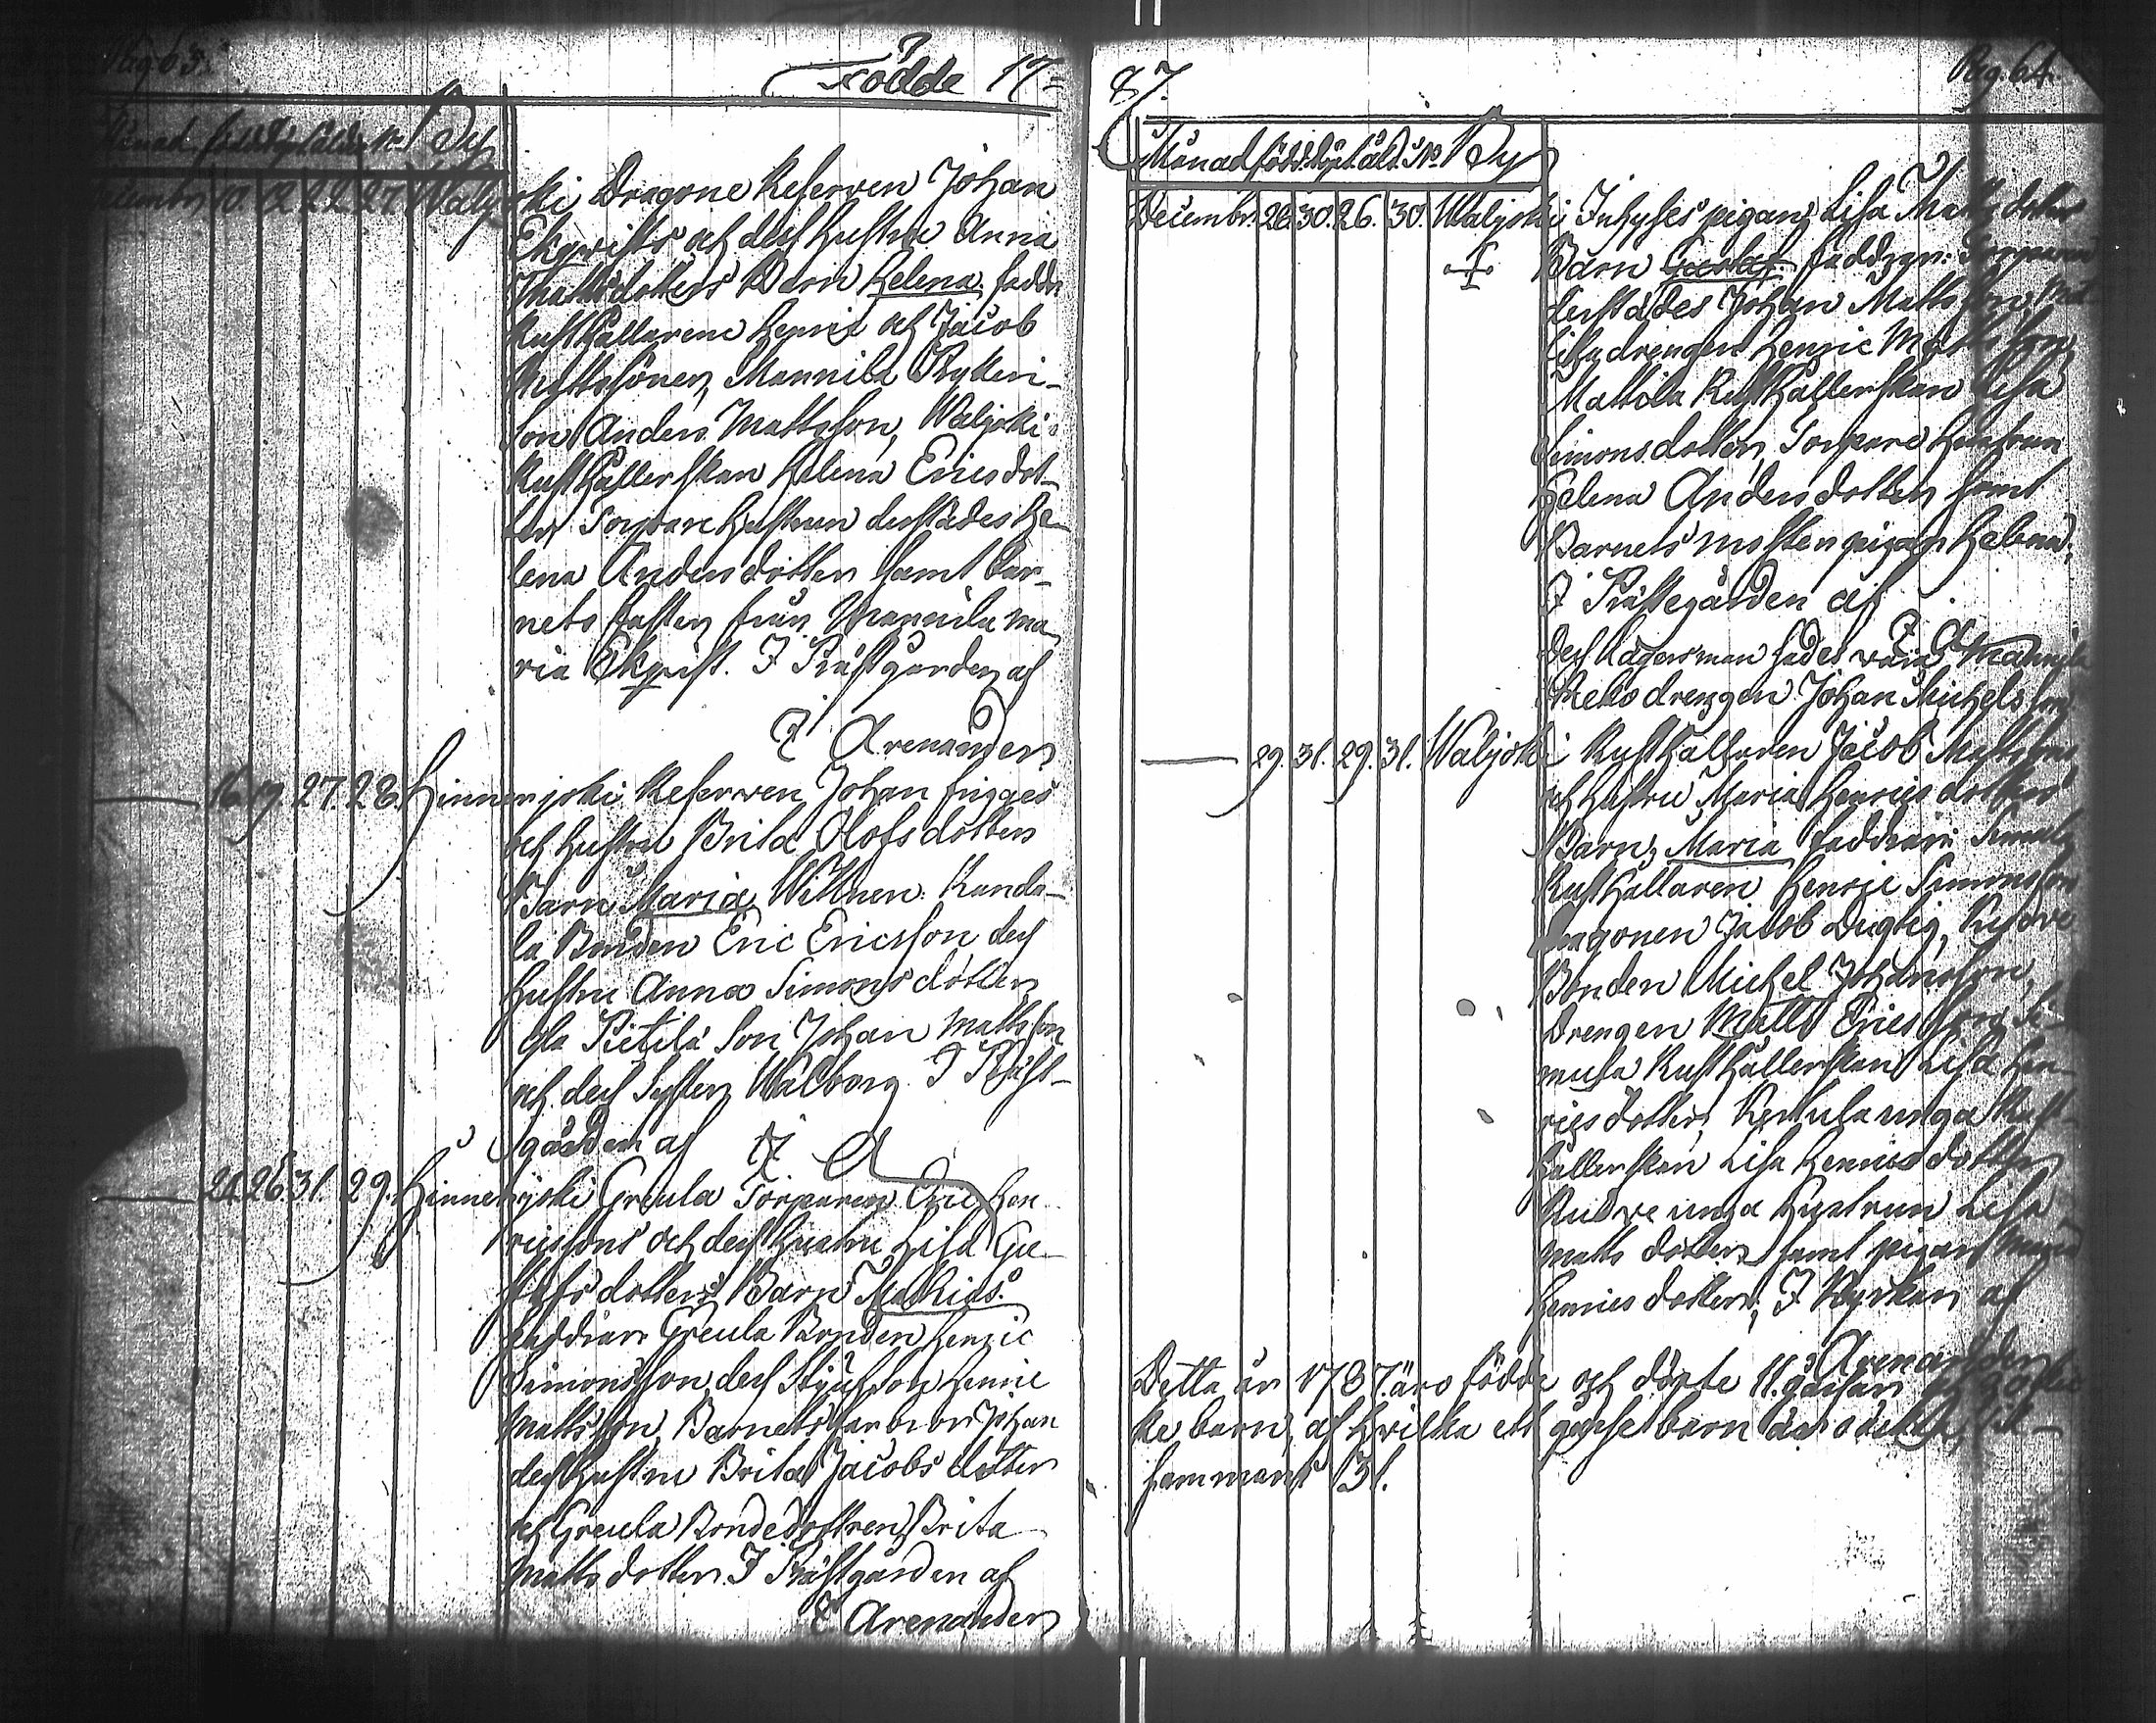 Pag 63.
Födde 17=
Månad född döpt ålder No By
Decembr 10. 12. 22. 27. Waljoki Dragone Reserven Johan
Ekqvists och dess hustru Anna
Mattsdotters Barn Helena. faddr
Rusthållarene Henric och Jacob
Mattssöner, Mannila Rytteri-
son Anders Mattsson, Waljoki
Rusthållerskan Helena Ericsdot-
ter Torpare hustrun derstädes He-
lena Andersdotter samt bar-
nets faster från Mannila Ma
ria Ekqvist. I Prästgården af
E Arenander
16. 19. 27. 28. Hinnerjoki Reserven Johan
och hustru Brita Olofsdotters
Barn Maria, Wittnen. Kanda-
la Bonden Eric Ericsson dess
hustru Anna Simonsdotter
Pietilä Son Johan Mattsson
och dess Syster Walborg. I Präst-
gården af E A
24. 26. 31. 29. Hinnerjoki Greula Torparens Eric Hen
ricssons och dess hustru Lisa Gu-
stafsdotters Barn Mathias.
Faddrar Greula Bonden Henric
Simonsson dess Stjufson Henric
Mattsson, Barnets farbror Johan
dess hustru Brita Jacobs dotter
och Greula Bondedottren Brita
Matts dotter. I Prästgården af
E Arenander
87.
Pag. 64.
Månad född. döpt. åld. No. By
Decembr. 26. 30. 26. 30. Waljoki Inhyses pigans Lisa Matts dotters
Barn Gustaf. faddrar:
derstädes Johan Mattsson,
drengen Henric Mattsson,
Mattila Rusthållerskan Lisa
Simonsdotter, Torpare hustrun
Helena Andersdotter samt
Barnets moster pigan Helena,
I Prästegården af
E A
Dess lägersman sades vara Mannila
drengen Johan Michelsson
29. 31. 29. 31. Waljoki Rusthållaren Jacob Mattsson
och hustru Maria Henricsdotters
Barn, Maria faddrar:
Rusthållaren Henric Simonsson
Dragonen Jacob Dugtig,
Bonden Michel Johansson,
Drengen Matts Ericsson
Rusthållerskan Lisa Hen-
ricsdotter, unga Rust-
hållerskan Lisa Henricsdotter
unga Hustrun Lisa
Matts dotter samt pigan Maria
Henricsdotter; I Kyrkan af
Arenander
Detta år 1787. äro födde och döpte 11. gåssar
ke barn, af hvilka ett gåsse barn är oäckta, till-
sammans 31.